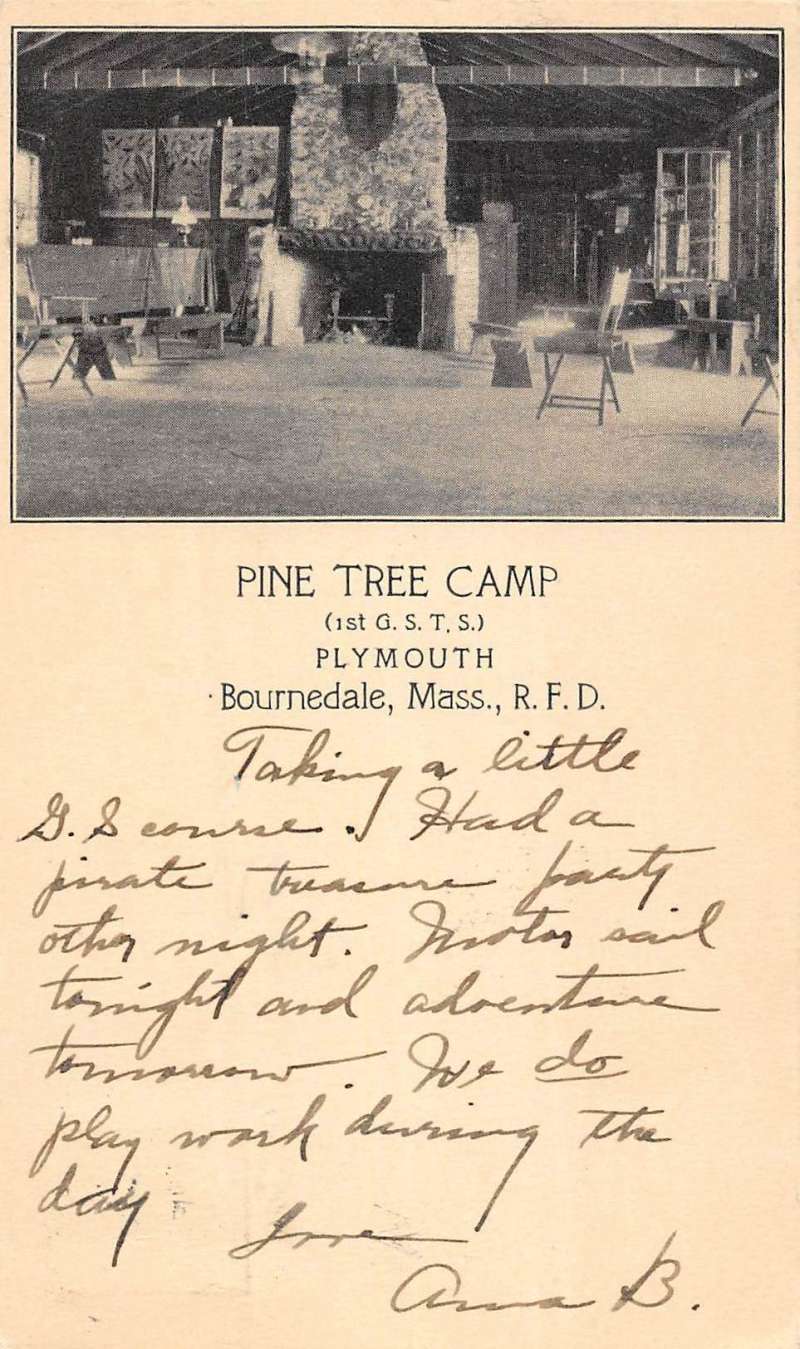 PINE TREE CAMP
(1st G. S. T. S.)
PLYMOUTH
Bournedale, Mass., R. F. D.
Taking a little
G. S course. Had a
pirate treasure party
other night. Motor sail
tonight and adventure
tomorrow. We do
play work during the
day
Love
Anna B.